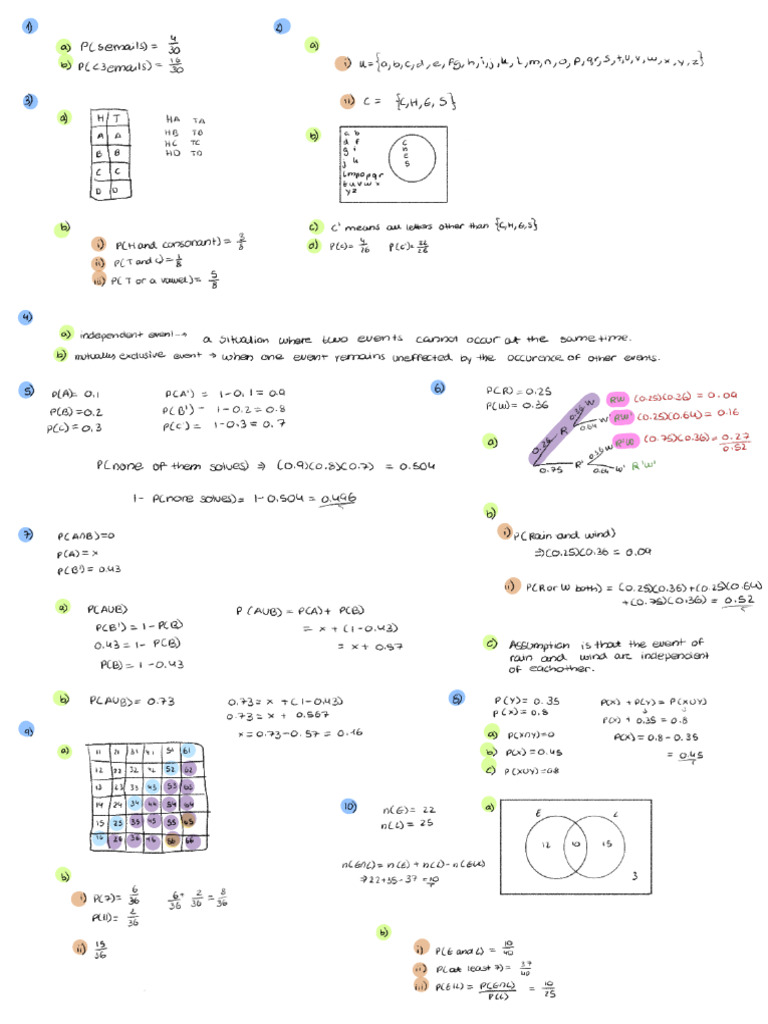 1)
a) P(5emails) = 4/30
b) P(<3emails) = 16/30
2)
a)
i) U = {a,b,c,d,e,f,g,h,i,j,k,l,m,n,o,p,q,r,s,t,u,v,w,x,y,z}
ii) C = {C,H,E,S}
b)
a b
d f
g i
j k
l m p o p q r
t u v w x
y z
c)  C' means all letters other than {C,H,E,S}
d) P(C) = 4/26 P(C') = 22/26
3)
a)
H T
A A
B B
C C
D D
HA TA
HB TB
HC TC
HD TD
b)
i) P(H and consonant) = 3/8
ii) P(T and C) = 1/8
iii) P(T or a vowel) = 5/8
4)
a) independent event → a situation where two events cannot occur at the same time.
b) mutually exclusive event → when one event remains uneffected by the occurence of other events.
5)
P(A) = 0.1 P(A') = 1-0.1 = 0.9
P(B) = 0.2 P(B') = 1-0.2 = 0.8
P(C) = 0.3 P(C') = 1-0.3 = 0.7
P(none of them solves) ⇒ (0.9)(0.8)(0.7) = 0.504
1- P(none solves) = 1-0.504 = 0.496
6)
P(R) = 0.25
P(W) = 0.36
a)
0.36 W RW (0.25)(0.36) = 0.09
R 0.64 W' RW' (0.25)(0.64) = 0.16
0.36 W R'W (0.75)(0.36) = 0.27
0.52
0.75 R' 0.64 W' R'W'
b)
i) P(Rain and wind)
⇒ (0.25)(0.36 = 0.09
ii) P(R or W both) = (0.25)(0.36)+(0.25)(0.64)
+(0.75)(0.36) = 0.52
c) Assumption is that the event of
rain and wind are independent
of eachother.
7)
P(A∩B) = 0
P(A) = x
P(B') = 0.43
a) P(AUB)
P(B') = 1-P(B)
0.43 = 1- P(B)
P(B) = 1-0.43
P(AUB) = P(A) + P(B)
= x + (1-0.43)
= x + 0.57
b) P(AUB) = 0.73
0.73 = x + (1-0.43)
0.73 = x + 0.567
x = 0.73-0.57 = 0.16
8)
P(Y) = 0.35
P(X) = 0.8
a) P(X∩Y) = 0
b) P(X) = 0.45
c) P(XUY) = 0.8
P(X) + P(Y) = P(XUY)
P(X) + 0.35 = 0.8
P(X) = 0.8-0.35
= 0.45
9)
a)
11 21 31 41 51 61
12 22 32 42 52 62
13 23 33 43 53 63
14 24 34 44 54 64
15 25 35 45 55 65
16 26 36 46 56 66
b)
i) P(7) = 6/36 6/36 + 2/36 = 8/36
P(11) = 2/36
ii) 15/36
10)
n(E) = 22
n(L) = 25
n(E∩L) = n(E) + n(L) - n(EUL)
→ 22+35-37 = 10
a)
E L
12 10 15
3
b)
i) P(E and L) = 10/40
ii) P(at least 7) = 37/40
iii) P(E|L) = P(E∩L)/P(L) = 10/25